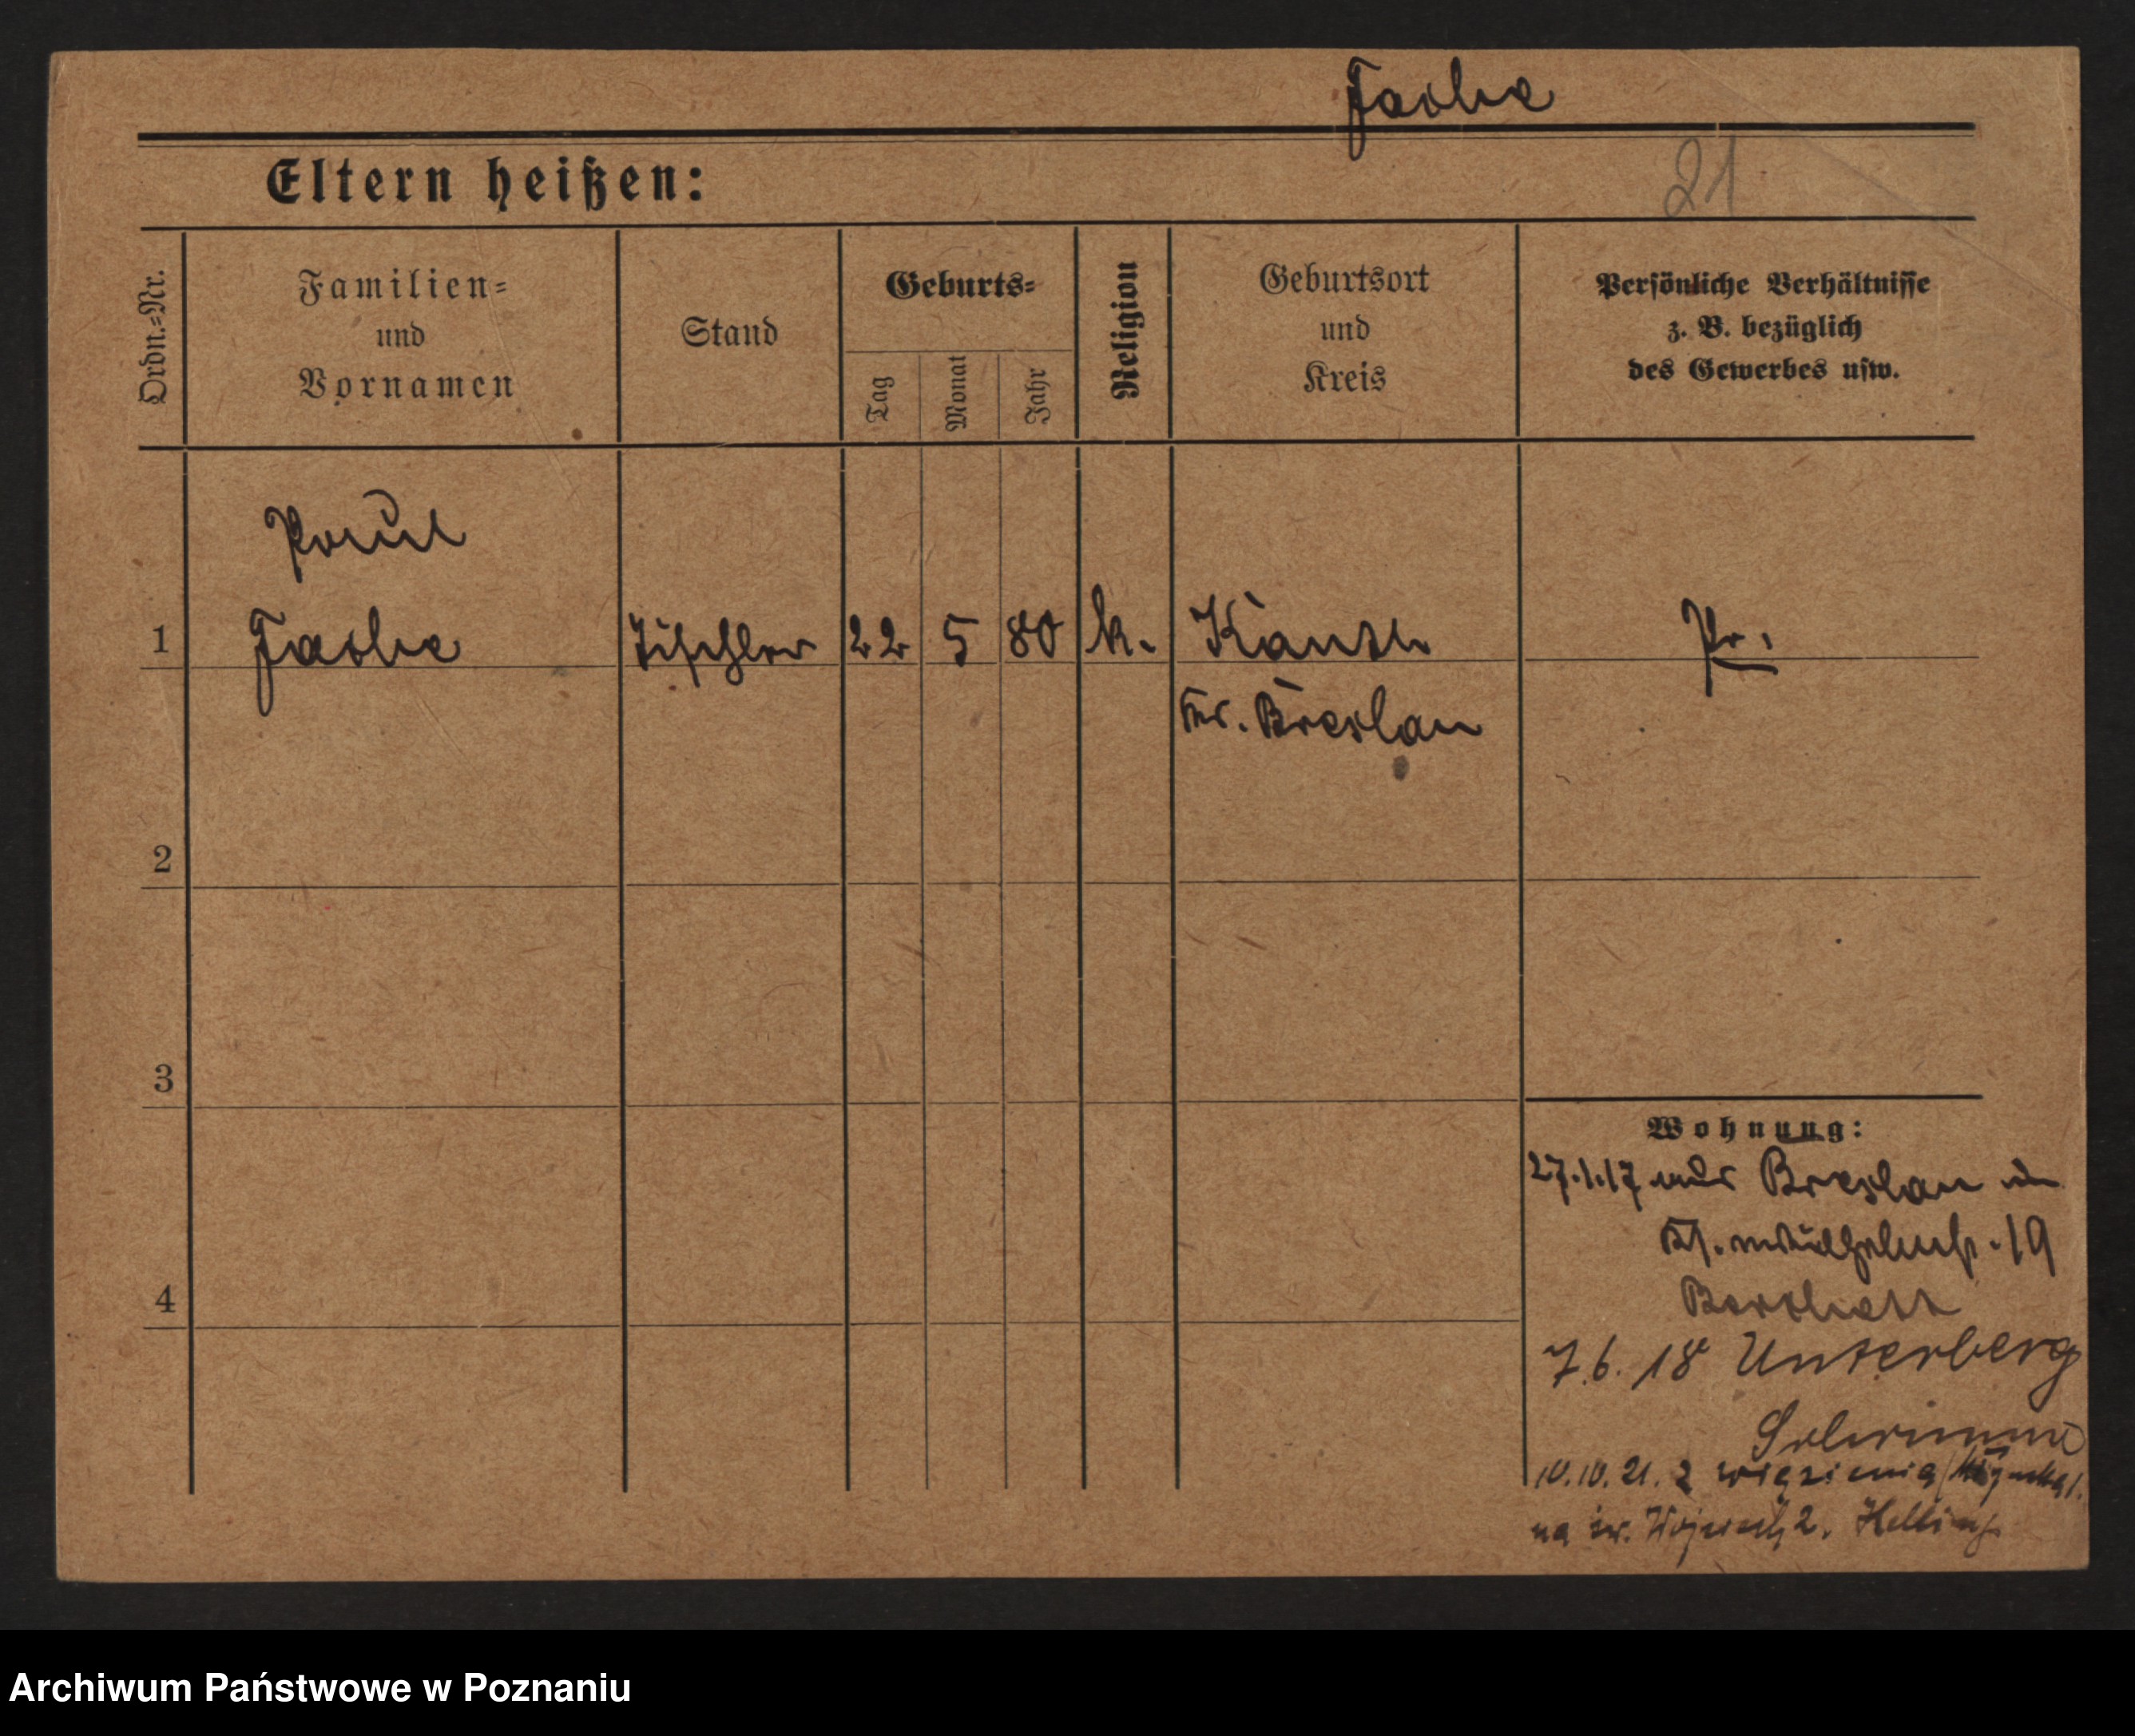 Jaške
Eltern heißen:
21
Ordn.=Nr.
Familien=
und
Vornamen
Stand
Geburts=
Tag
Monat
Jahr
Religion
Geburtsort
und
Kreis
Persönliche Verhältnisse
z. B. bezüglich
des Gewerbes usw.
Paul
1 Tischler 22 5 80 k. Kanth Pr.
Kr. Breslau
2
3
4
Wohnung:
27.1.17 aus Breslau in
19
7.6.18 Unterberg
10.10.21. z więzienia
na św. Wojciech 2.
Archiwum Państwowe w Poznaniu